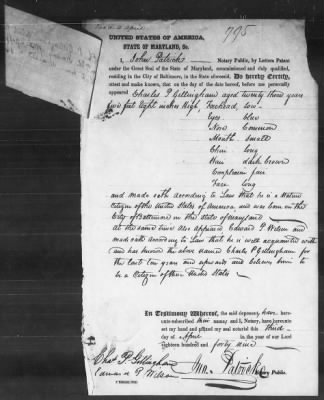 795
UNITED STATES OF AMERICA,
STATE OF MARYLAND, Sc.
I, John Patrick Notary Public, by Letters Patent
under the Great Seal of the State of Maryland, commissioned and duly qualified,
residing in the City of Baltimore, in the State aforesaid, Do hereby Certify,
attest and make known, that on the day of the date hereof, before me personally
appeared Charles P Gillingham aged twenty three years
five feet Eight inches High Forehead low
Eyes blue
Nose Common
Mouth Small
Chin long
Hair dark brown
Complexion fair
Face long
and made oath according to Law that he is a Native
Citizen of the United States of America and was born in the
City of Baltimore in the state of maryland
At the same time Also appeared Edward P. Wilson and
made oath According to Law that he is well acquainted with
and has known the above named Charles P Gillingham for
the last ten years and upwards and believes him to
be a Citizen of the United States
In Testimony Whereof, the said deponents have hereunto
subscribed their names and I, Notary, have hereunto
set my hand and affixed my seal notarial this third
day of April in the year of our Lord
eighteen hundred and forty nine
Chas P. Gillingham
Edward P. Wilson
Jno. Patrick
Notary Public.